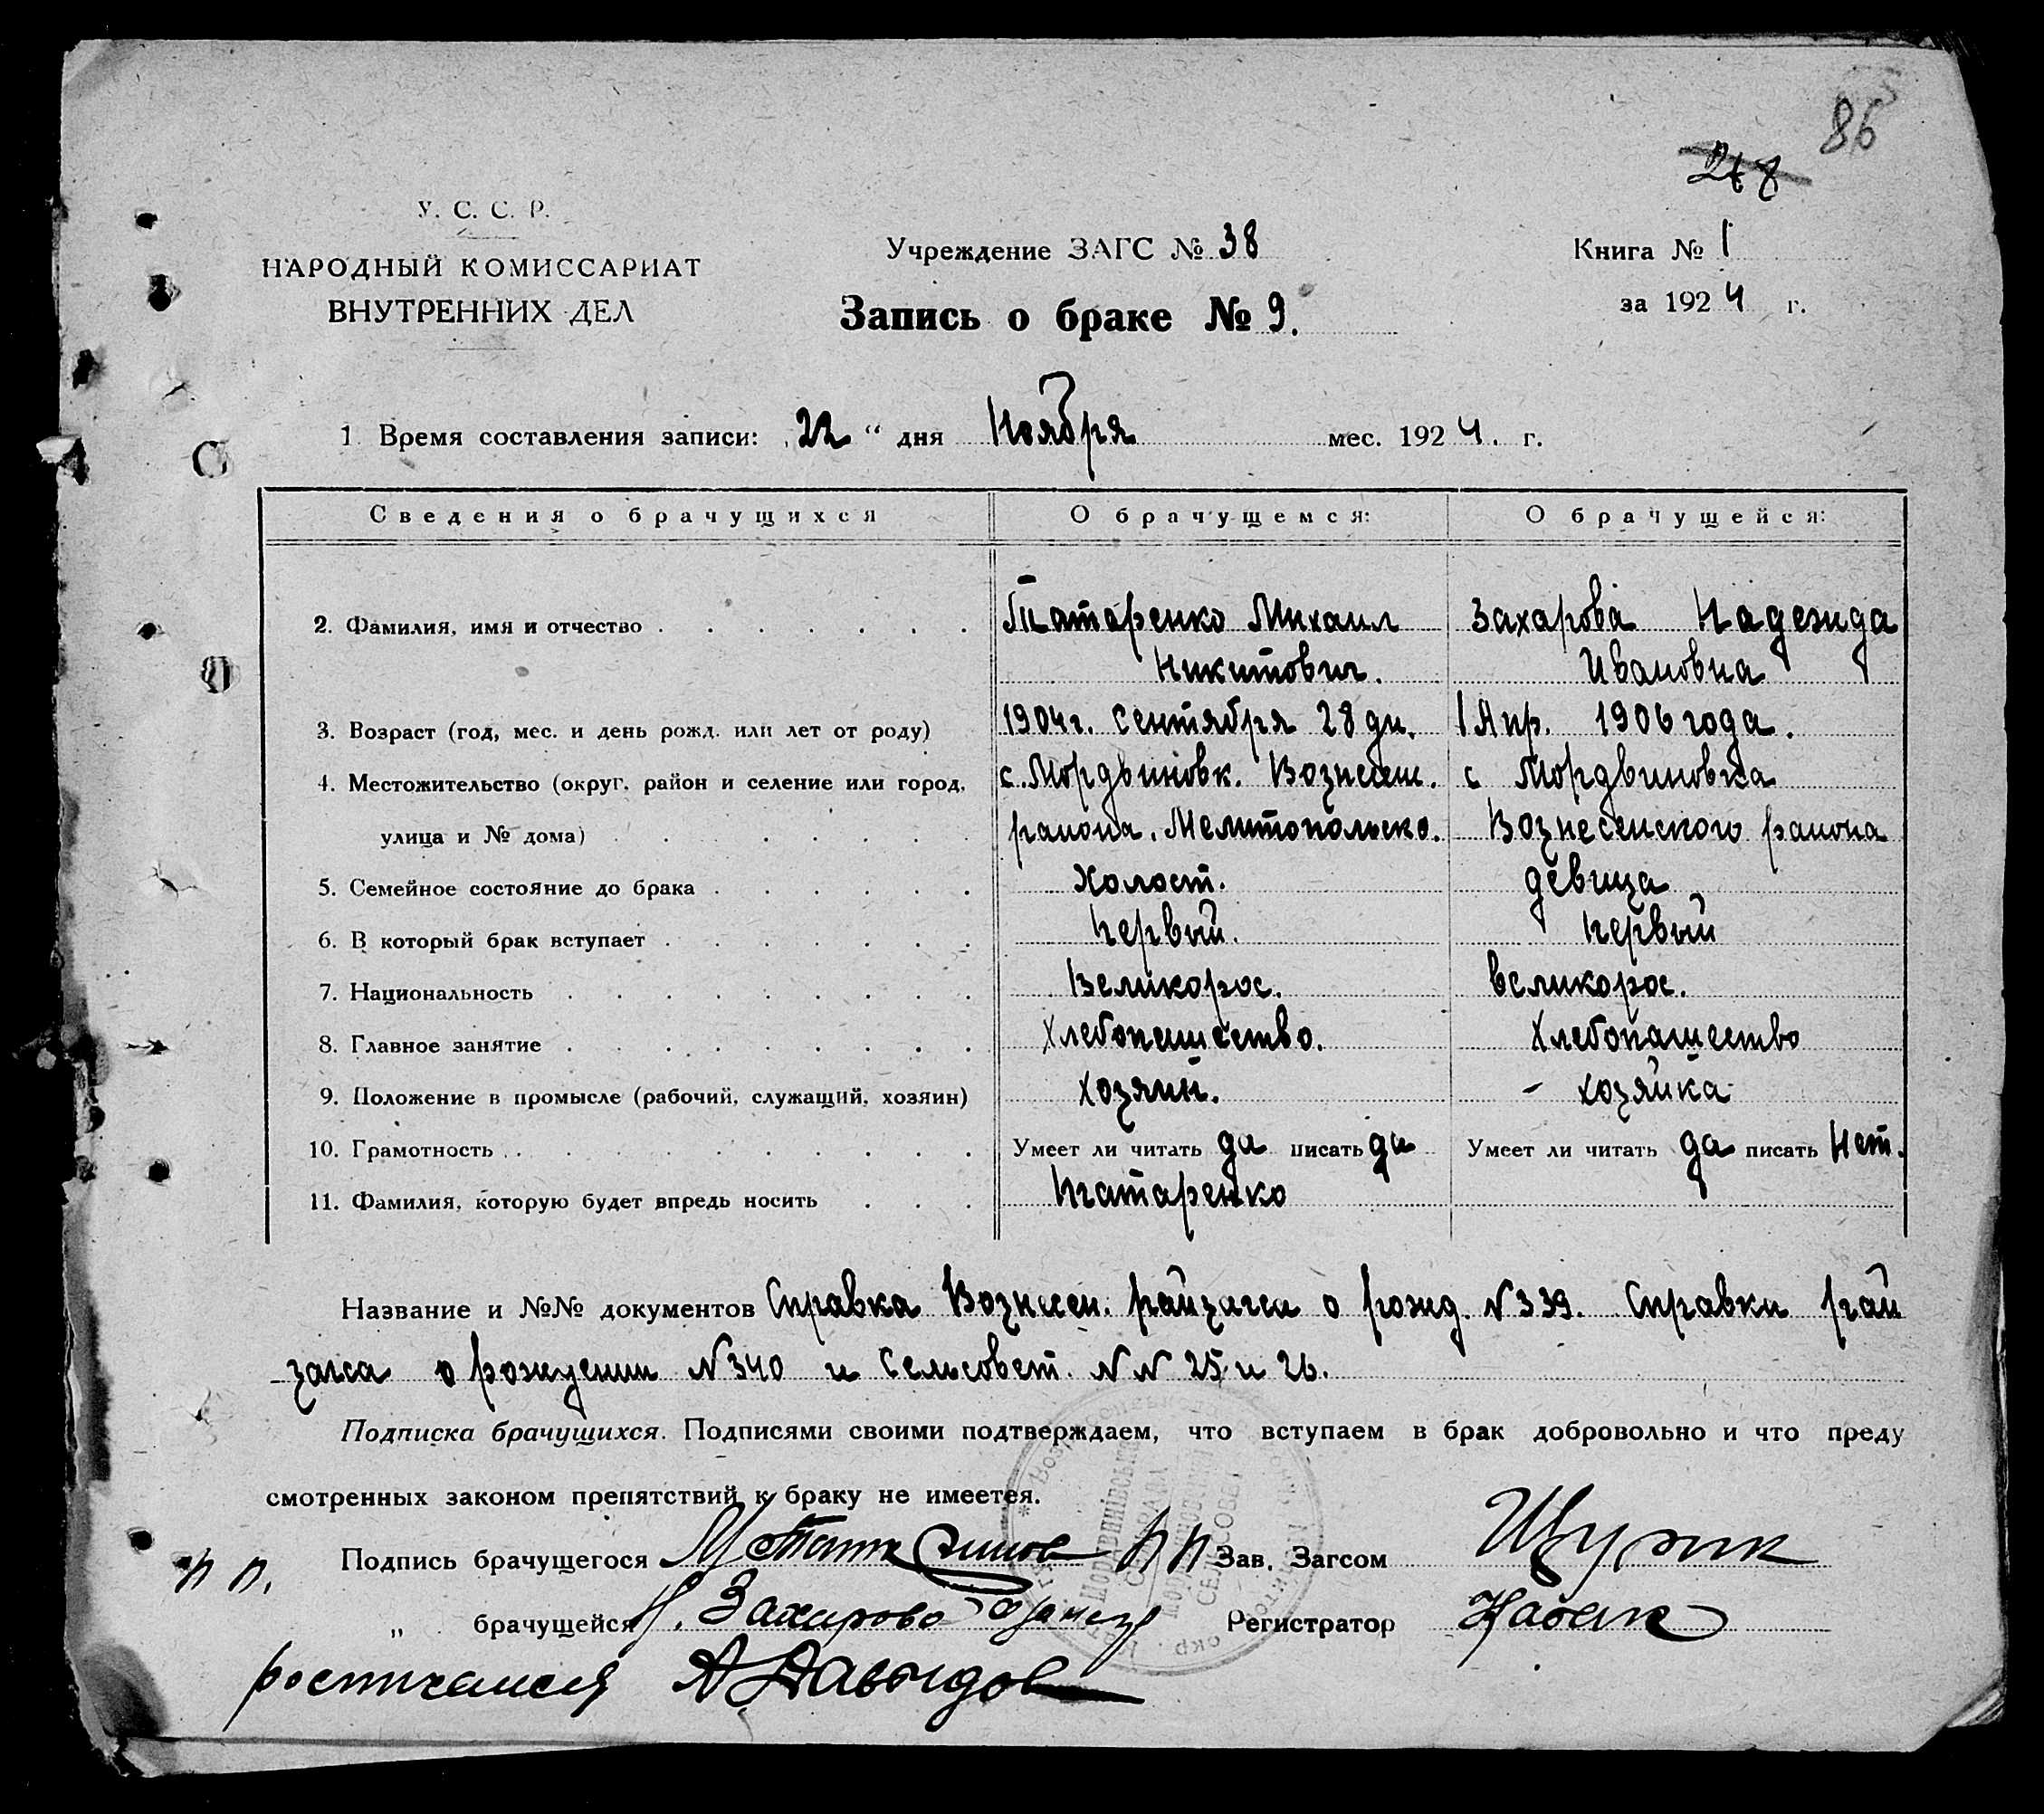 86
218
У. С. С. Р.
НАРОДНЫЙ КОМИССАРИАТ
ВНУТРЕННИХ ДЕЛ
Учреждение ЗАГС № 38
Книга № 1
за 1924 г.
Запись о браке № 9.
1 Время составления записи: „22“ дня Ноября мес. 1924. г.
Сведения о брачущихся О брачущемся: О брачущейся:
2. Фамилия, имя и отчество Татаренко Михаил Захарова Надежда
Никитович. Ивановна
3. Возраст (год, мес. и день рожд. или лет от роду) 1904 г. Сентября 28 дн. 1 Апр. 1906 года.
4. Местожительство (округ, район и селение или город, с. Мордвиновк. Вознесен. с Мордвиновка
улица и № дома) района. Мелитопольско. Вознесенского района
5. Семейное состояние до брака Холост. девица
6. В который брак вступает первый. первый
7. Национальность Великорос. великорос.
8. Главное занятие Хлебопашество. Хлебопашество
9. Положение в промысле (рабочий, служащий, хозяин) Хозяин. - хозяйка
10. Грамотность Умеет ли читать да писать да Умеет ли читать да писать Нет.
11. Фамилия, которую будет впредь носить Татаренко
Название и №№ документов Справка Вознесен. райзагса о рожд. N 339. Справки рай
загса о рождении N 340 и Сельсовет. N N 25 и 26.
Подписка брачущихся. Подписями своими подтверждаем, что вступаем в брак добровольно и что преду
смотренных законом препятствий к браку не имеется.
п п. Подпись брачущегося п п Зав. Загсом Щурик
„ брачущейся Н. Захарова Регистратор
А Давыдов
СЕЛЬСОВЕТ